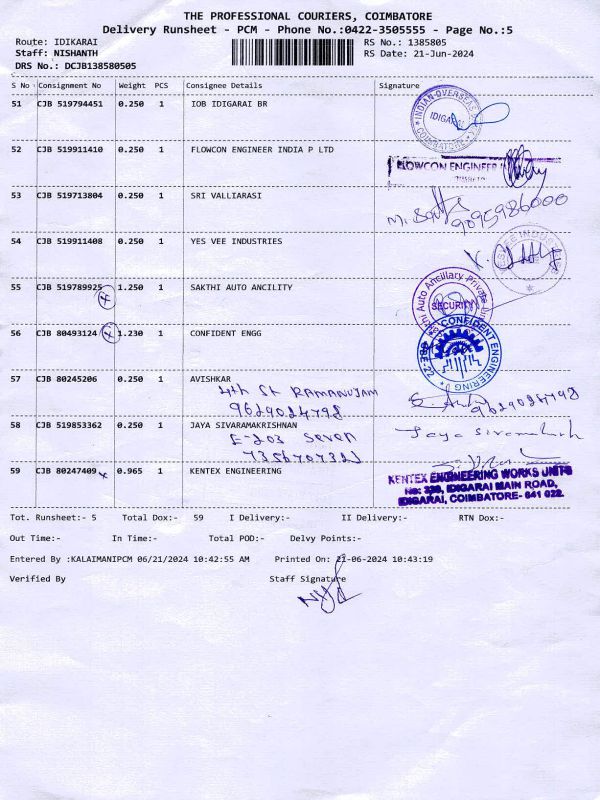 THE PROFESSIONAL COURIERS, COIMBATORE
Delivery Runsheet - PCM - Phone No.:0422-3505555 - Page No.:5
Route: IDIKARAI RS No.: 1385805
Staff: NISHANTH RS Date: 21-Jun-2024
DRS No.: DCJB138580505
S No Consignment No Weight PCS Consignee Details Signature
51 CJB 519794451 0.250 1 IOB IDIGARAI BR
INDIAN OVERSEAS
IDIGARAI
COIMBATORE
52 CJB 519911410 0.250 1 FLOWCON ENGINEER INDIA P LTD
FLOWCON ENGINEER
53 CJB 519713804 0.250 1 SRI VALLIARASI
9095986000
54 CJB 519911408 0.250 1 YES VEE INDUSTRIES
55 CJB 519789925 1.250 1 SAKTHI AUTO ANCILITY
Auto Ancillary Private
SECURITY
56 CJB 80493124 1.230 1 CONFIDENT ENGG
CONFIDENT ENGINEERING
57 CJB 80245206 0.250 1 AVISHKAR
4th St RAMANUJAM
9629024798 9629024798
58 CJB 519853362 0.250 1 JAYA SIVARAMAKRISHNAN
E-203 Seven
59 CJB 80247409 0.965 1 KENTEX ENGINEERING
KENTEX ENGINEERING WORKS UNIT
IDIGARAI MAIN ROAD,
IDIGARAI, COIMBATORE- 641 022.
Tot. Runsheet:- 5 Total Dox:- 59 I Delivery:- II Delivery:- RTN Dox:-
Out Time:- In Time:- Total POD:- Delvy Points:-
Entered By :KALAIMANIPCM 06/21/2024 10:42:55 AM Printed On: 21-06-2024 10:43:19
Verified By Staff Signature